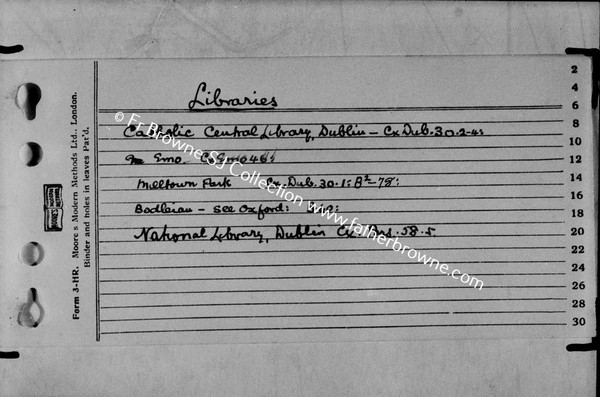 Libraries
Catholic Central Library, Dublin - Cx Dub. 30.2-4:
Emo
Milltown Park Cx. Dub. 30.1:
Bodleian - see Oxford:
National Library, Dublin Cx. 58.5
© Fr Browne SJ Collection www.fatherbrowne.com
Form 3-HR. Moore's Modern Methods Ltd., London.
Binder and holes in leaves Pat'd.
2
4
6
8
10
12
14
16
18
20
22
24
26
28
30